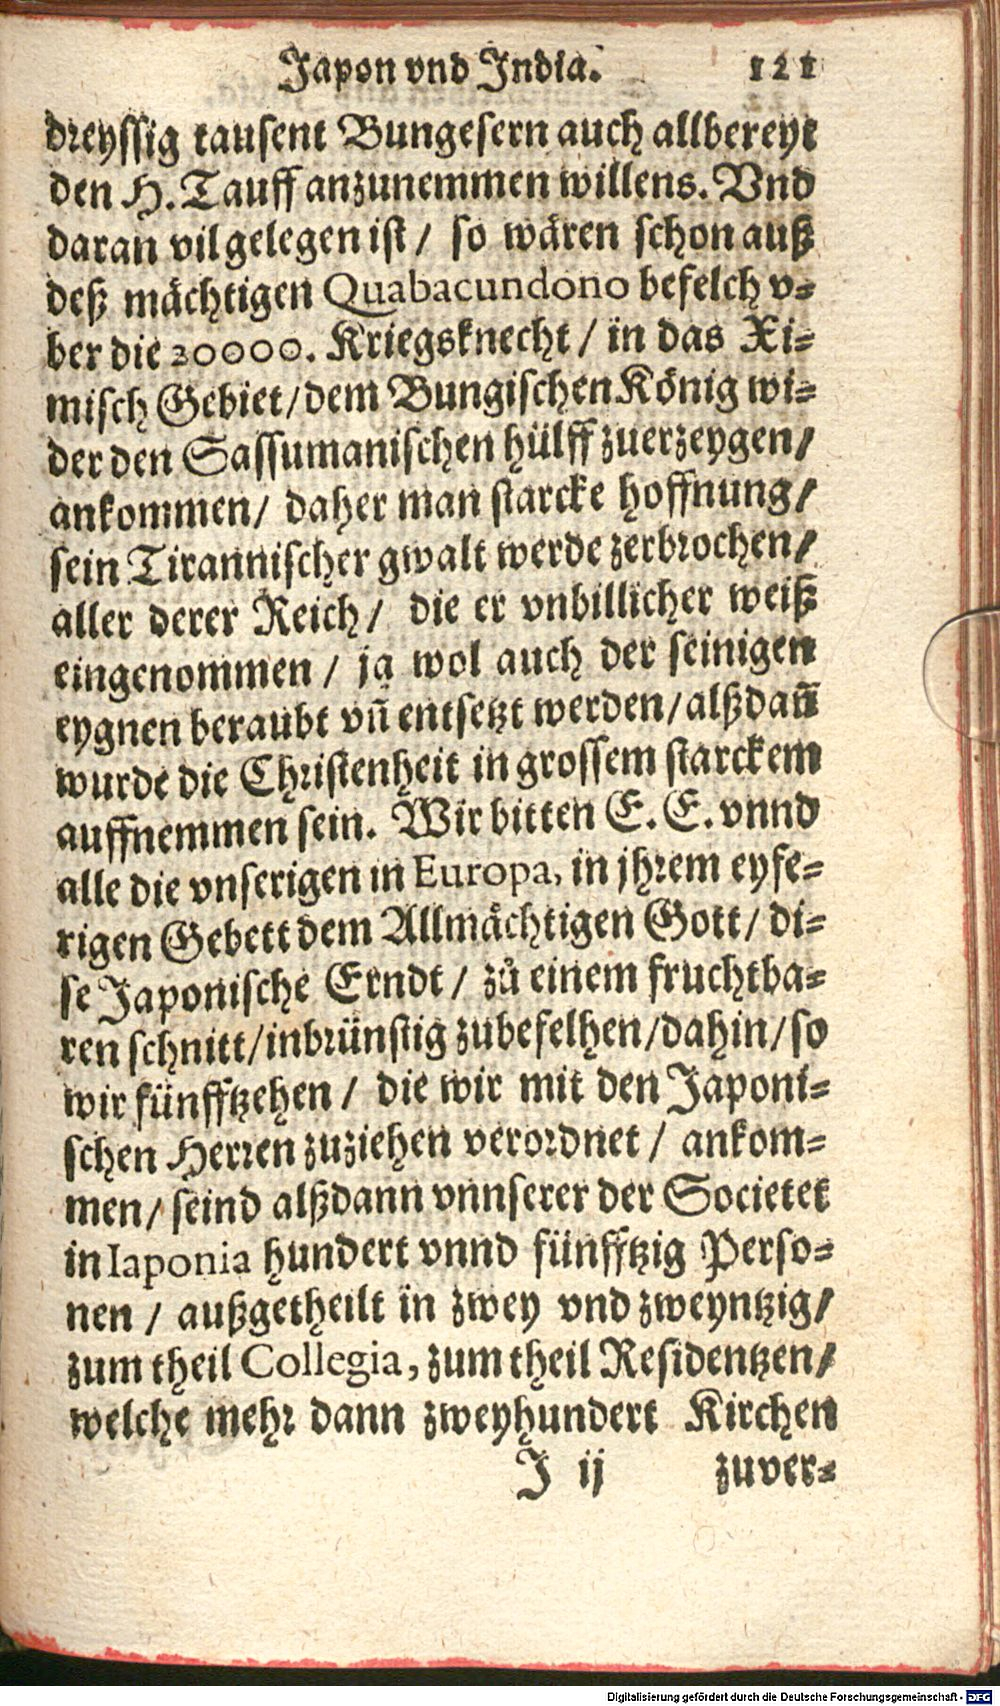 Japon vnd India. 121
dreyssig tausent Bungesern auch allbereyt
den H. Tauff anzunemmen willens. Vnd
daran vil gelegen ist / so wären schon auß
deß mächtigen Quabacundono befelch v-
ber die 20000. Kriegsknecht / in das Xi-
misch Gebiet / dem Bungischen König wi-
der den Sassumanischen hülff zuerzeygen /
ankommen / daher man starcke hoffnung /
sein Tirannischer gwalt werde zerbrochen /
aller derer Reich / die er vnbillicher weiß
eingenommen / ja wol auch der seinigen
eygnen beraubt vñ entsetzt werden / alßdañ
wurde die Christenheit in grossem starckem
auffnemmen sein. Wir bitten E. E. vnnd
alle die vnserigen in Europa, in jhrem eyfe-
rigen Gebett dem Allmächtigen Gott / di-
se Japonische Erndt / zů einem fruchtba-
ren schnitt / inbrünstig zubefelhen / dahin / so
wir fünfftzehen / die wir mit den Japoni-
schen Herren zuziehen verordnet / ankom-
men / seind alßdann vnnserer der Societet
in Iaponia hundert vnnd fünfftzig Perso-
nen / außgetheilt in zwey vnd zweyntzig /
zum theil Collegia, zum theil Residentzen /
welche mehr dann zweyhundert Kirchen
J ij zuver-
Digitalisierung gefördert durch die Deutsche Forschungsgemeinschaft - DFG